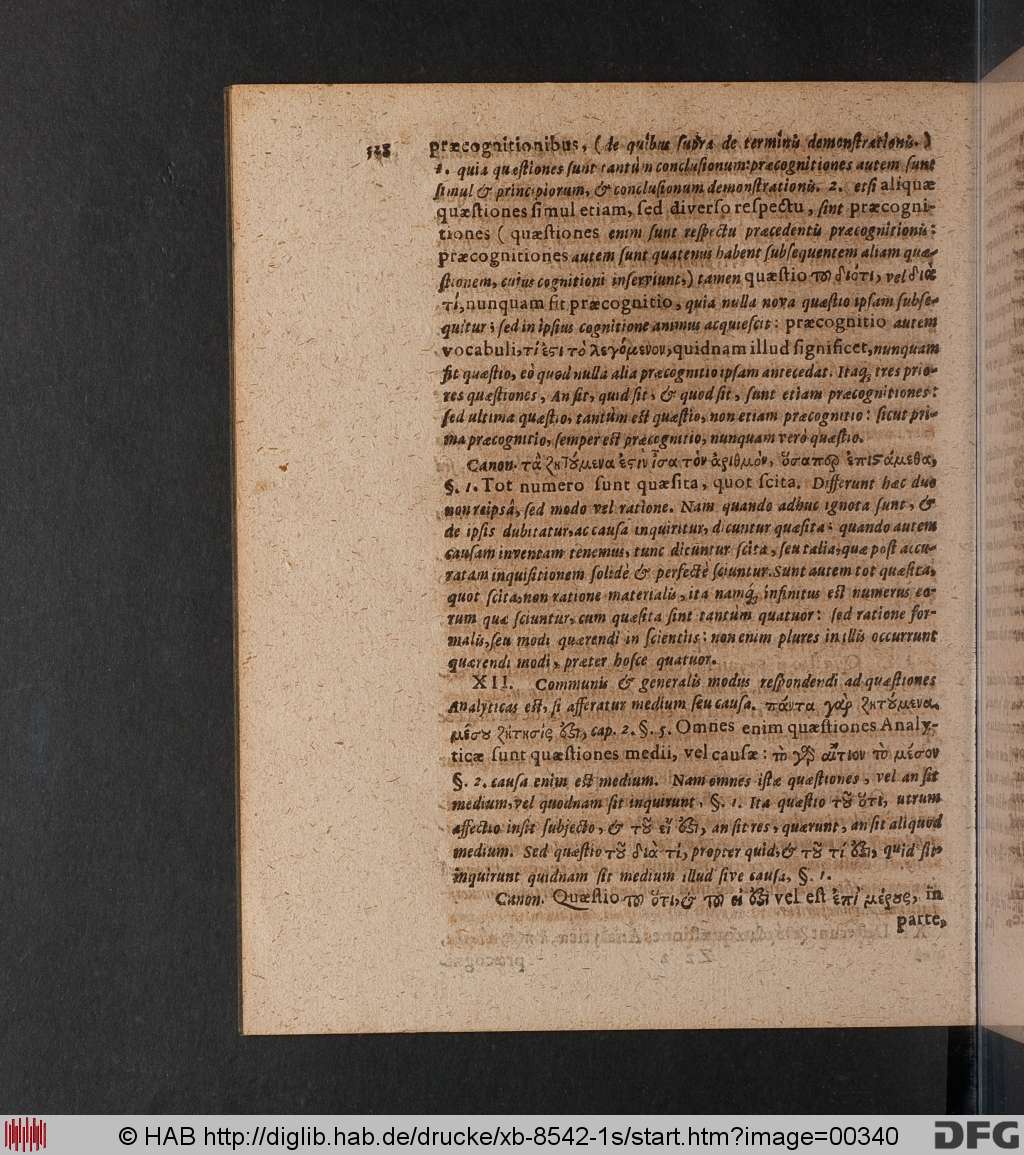 328 præcognitionibus, (de quibus ſupra de terminis demonſtrationis.)
1. quia quæſtiones ſunt tantùm concluſionum: præcognitiones autem ſunt
ſimul & principiorum, & concluſionum demonſtrationis. 2. etſi aliquæ
quæſtiones ſimul etiam, ſed diverſo reſpectu, ſint præcogni-
tiones ( quæſtiones enim ſunt reſpectu præcedentis præcognitionis:
præcognitiones autem ſunt quatenus habent ſubſequentem aliam quæ-
ſtionem, cuius cognitioni inſerviunt,) tamen quæſtio τοῦ διότι, vel διὰ
τί, nunquam fit præcognitio, quia nulla nova quæſtio ipſam ſubſe-
quitur; ſed in ipſius cognitione animus acquieſcit: præcognitio autem
vocabuli, τί ἐςι τὸ λεγόμενον, quidnam illud ſignificet, nunquam
fit quæſtio, eò quod nulla alia præcognitio ipſam antecedat. Itaq; tres prio-
res quæſtiones, An ſit, quid ſit, & quod ſit, ſunt etiam præcognitiones:
ſed ultima quæſtio, tantùm eſt quæſtio, non etiam præcognitio: ſicut pri-
ma præcognitio, ſemper eſt præcognitio, nunquam verò quæſtio.
Canon. τὰ ζητούμενα ἐςὶν ἴσα τὸν ἀριθμὸν, ὅσαπερ ἐπιςάμεθα,
§. 1. Tot numero ſunt quæſita, quot ſcita. Differunt hæc duo
non reipsâ, ſed modo vel ratione. Nam quando adhuc ignota ſunt, &
de ipſis dubitatur, ac cauſa inquiritur, dicuntur quæſita: quando autem
cauſam inventam tenemus, tunc dicuntur ſcita, ſeu talia, quæ poſt accu-
ratam inquiſitionem ſolidè & perfectè ſciuntur. Sunt autem tot quæſita,
quot ſcita, non ratione materialis, ita namq; infinitus eſt numerus eo-
rum quæ ſciuntur, cum quæſita ſint tantùm quatuor: ſed ratione for-
malis, ſeu modi quærendi in ſcientiis: non enim plures in illis occurrunt
quærendi modi, præter hoſce quatuor.
XII. Communis & generalis modus reſpondendi ad quæſtiones
Analyticas eſt, ſi afferatur medium ſeu cauſa. πάντα γὰρ ζητούμενα,
μέσου ζήτησίς ἐςι, cap. 2. §. 5. Omnes enim quæſtiones Analy-
ticæ ſunt quæſtiones medii, vel cauſæ: τὸ γὰρ αἴτιον τὸ μέσον
§. 2. cauſa enim eſt medium. Nam omnes iſtæ quæſtiones, vel an ſit
medium, vel quodnam ſit inquirunt, §. 1. Ita quæſtio τοῦ ὅτι, utrum
affectio inſit ſubjecto, & τοῦ εἴ ἐςι, an ſit res, quærunt, an ſit aliquod
medium. Sed quæſtio τοῦ διὰ τί, propter quid, & τοῦ τί ἐςι, quid ſit,
inquirunt quidnam ſit medium illud ſive cauſa, §. 1.
Canon. Quæſtio τοῦ ὅτι, & τοῦ εἰ ἐςι vel eſt ἐπὶ μέρους, in
parte,
© HAB http://diglib.hab.de/drucke/xb-8542-1s/start.htm?image=00340
DFG